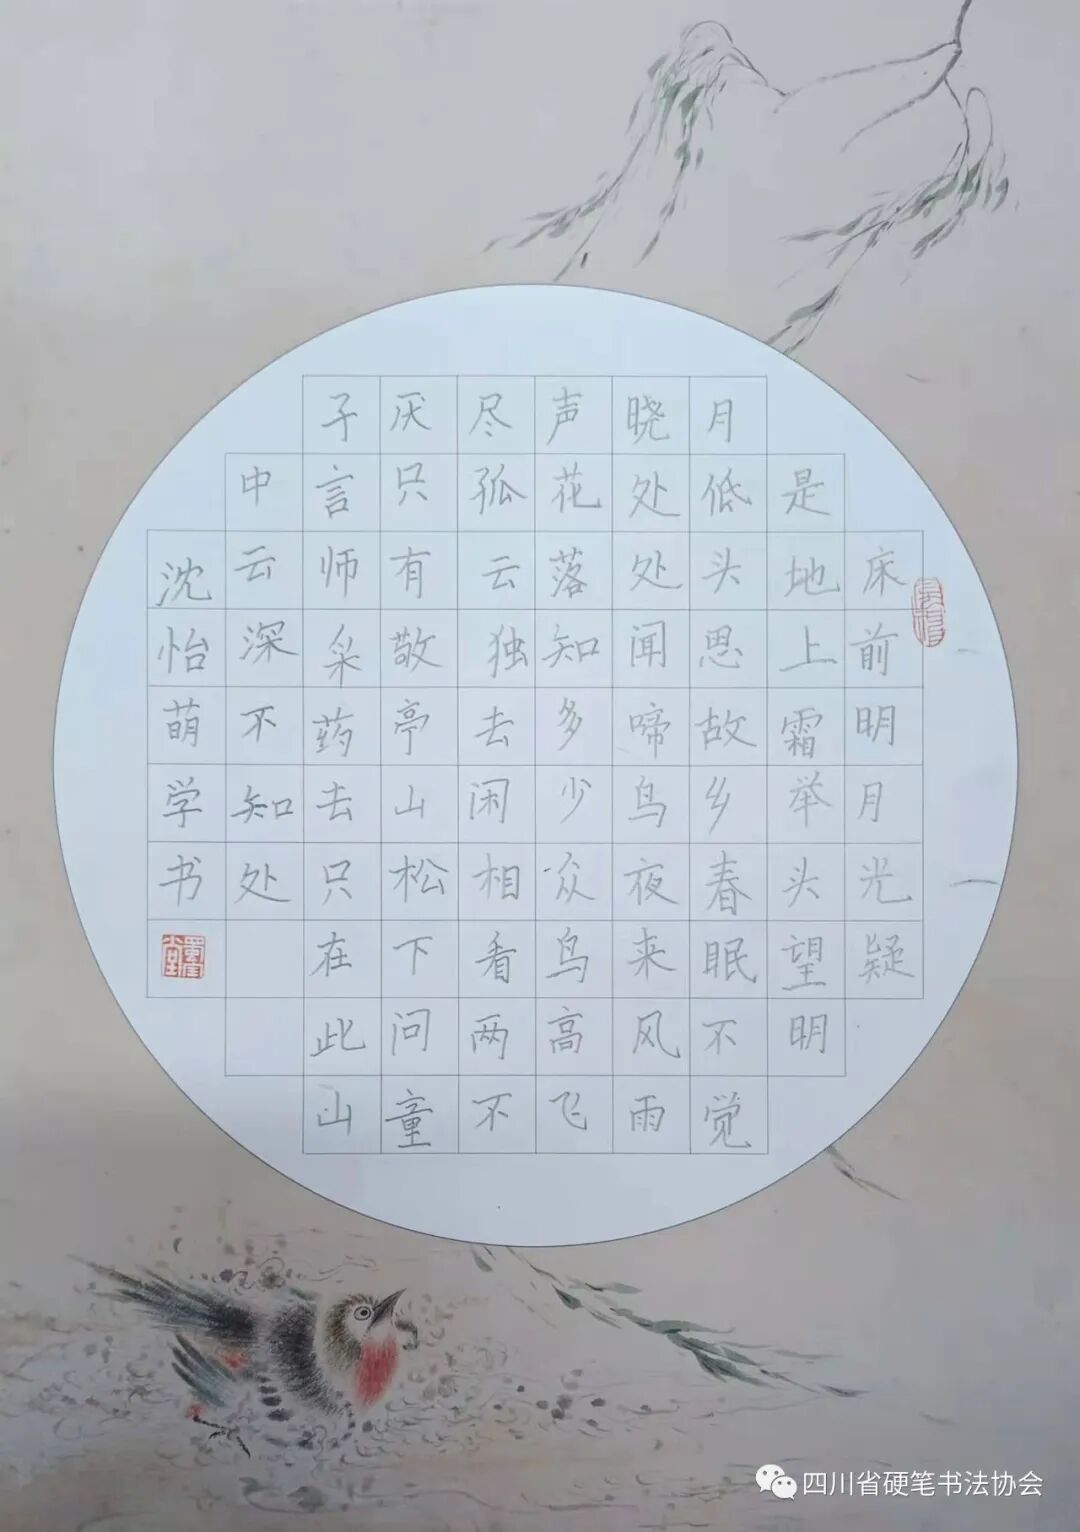 床前明月光疑
是地上霜举头望明
月低头思故乡春眠不觉
晓处处闻啼鸟夜来风雨
声花落知多少众鸟高飞
尽孤云独去闲相看两不
厌只有敬亭山松下问童
子言师采药去只在此山
中云深不知处
沈怡萌学书
四川省硬笔书法协会